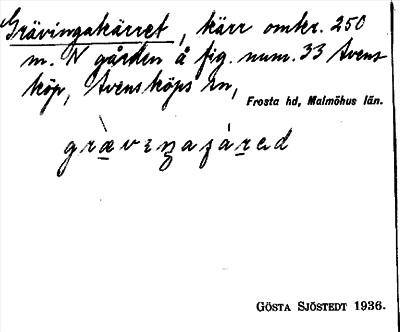 Grävingakärret, kärr omkr. 250
m. N gården å fig. num. 33 Svens
köp, Svensköps sn,
Frosta hd, Malmöhus län.
GÖSTA SJÖSTEDT 1936.